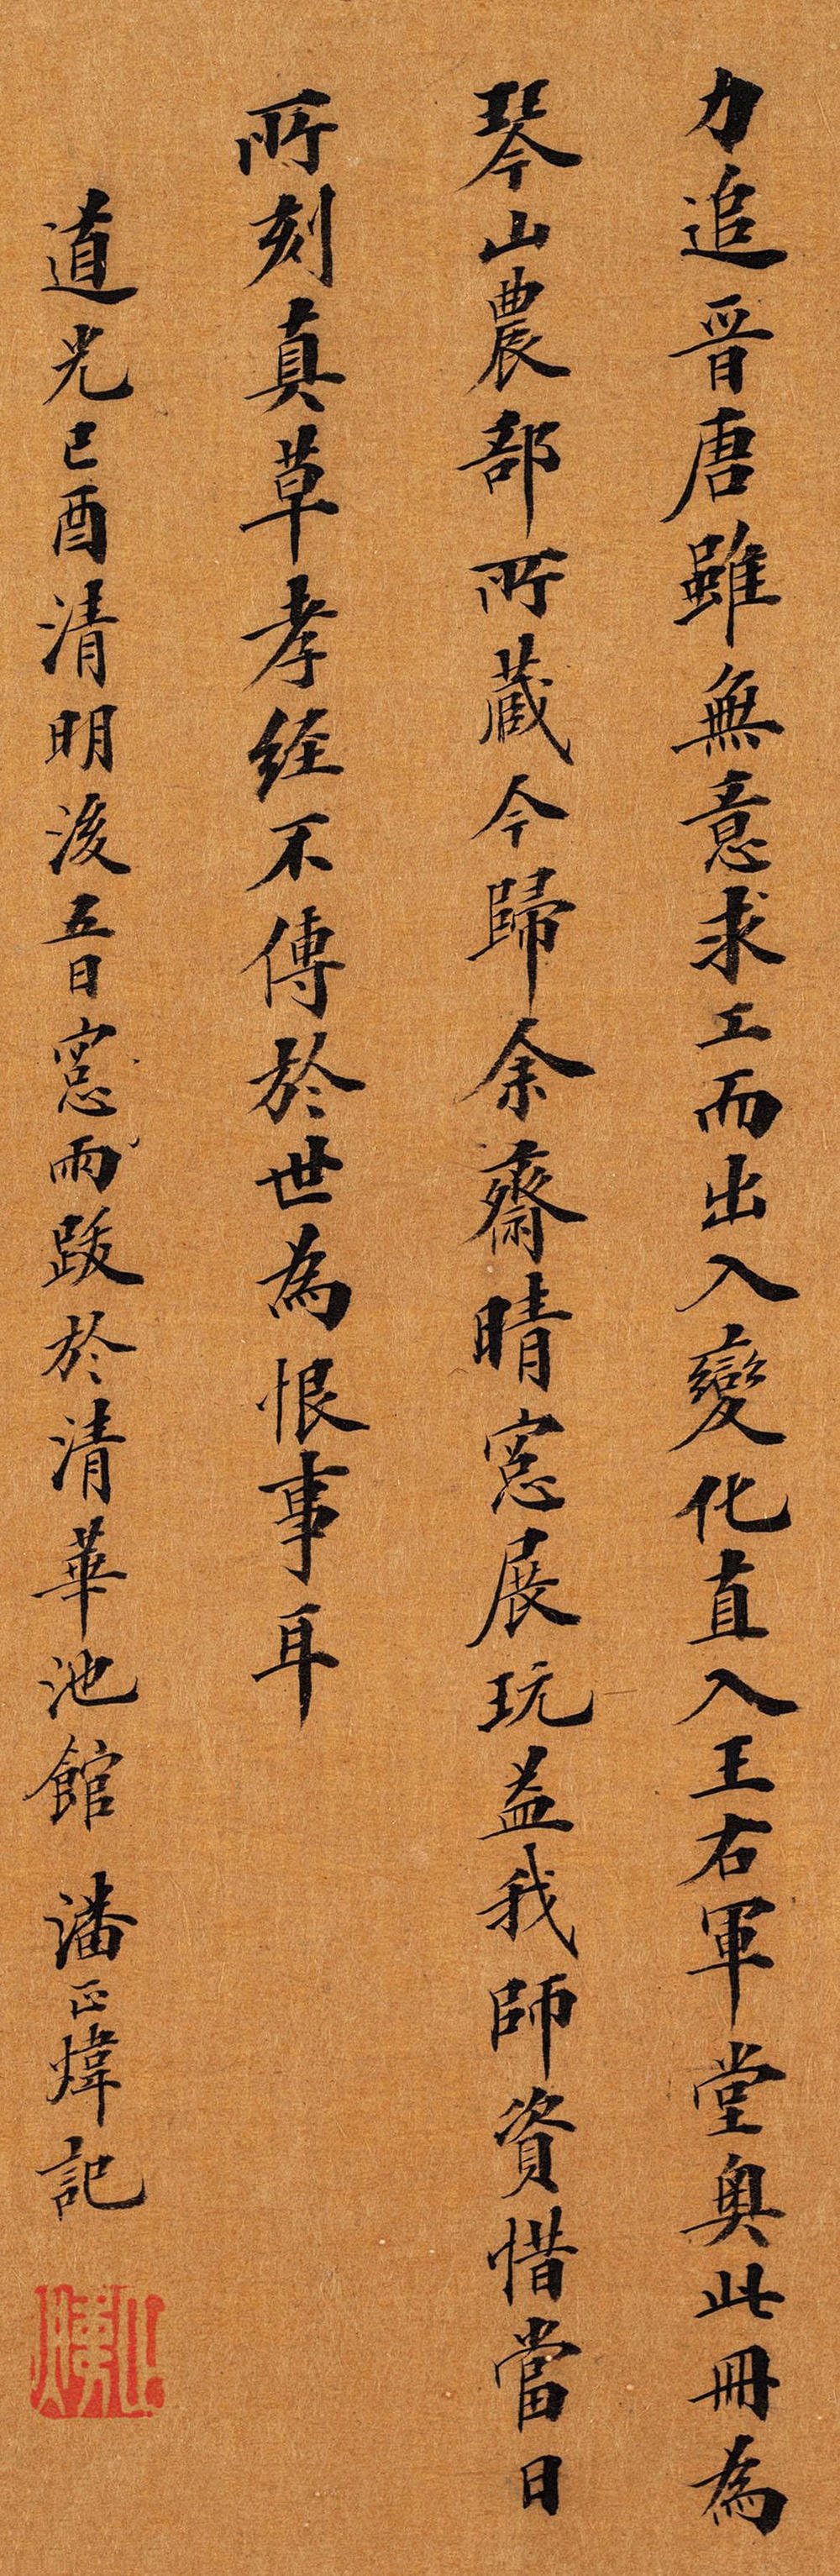 力追晉唐雖無意求工而出入變化直入王右軍堂奧此冊為
琴山農部所蔵今歸余齋晴窓展玩益我師資惜當日
所刻真草孝經不傳於世為恨事耳
道光己酉清明後五日窓雨跋於清華池館 潘正煒記